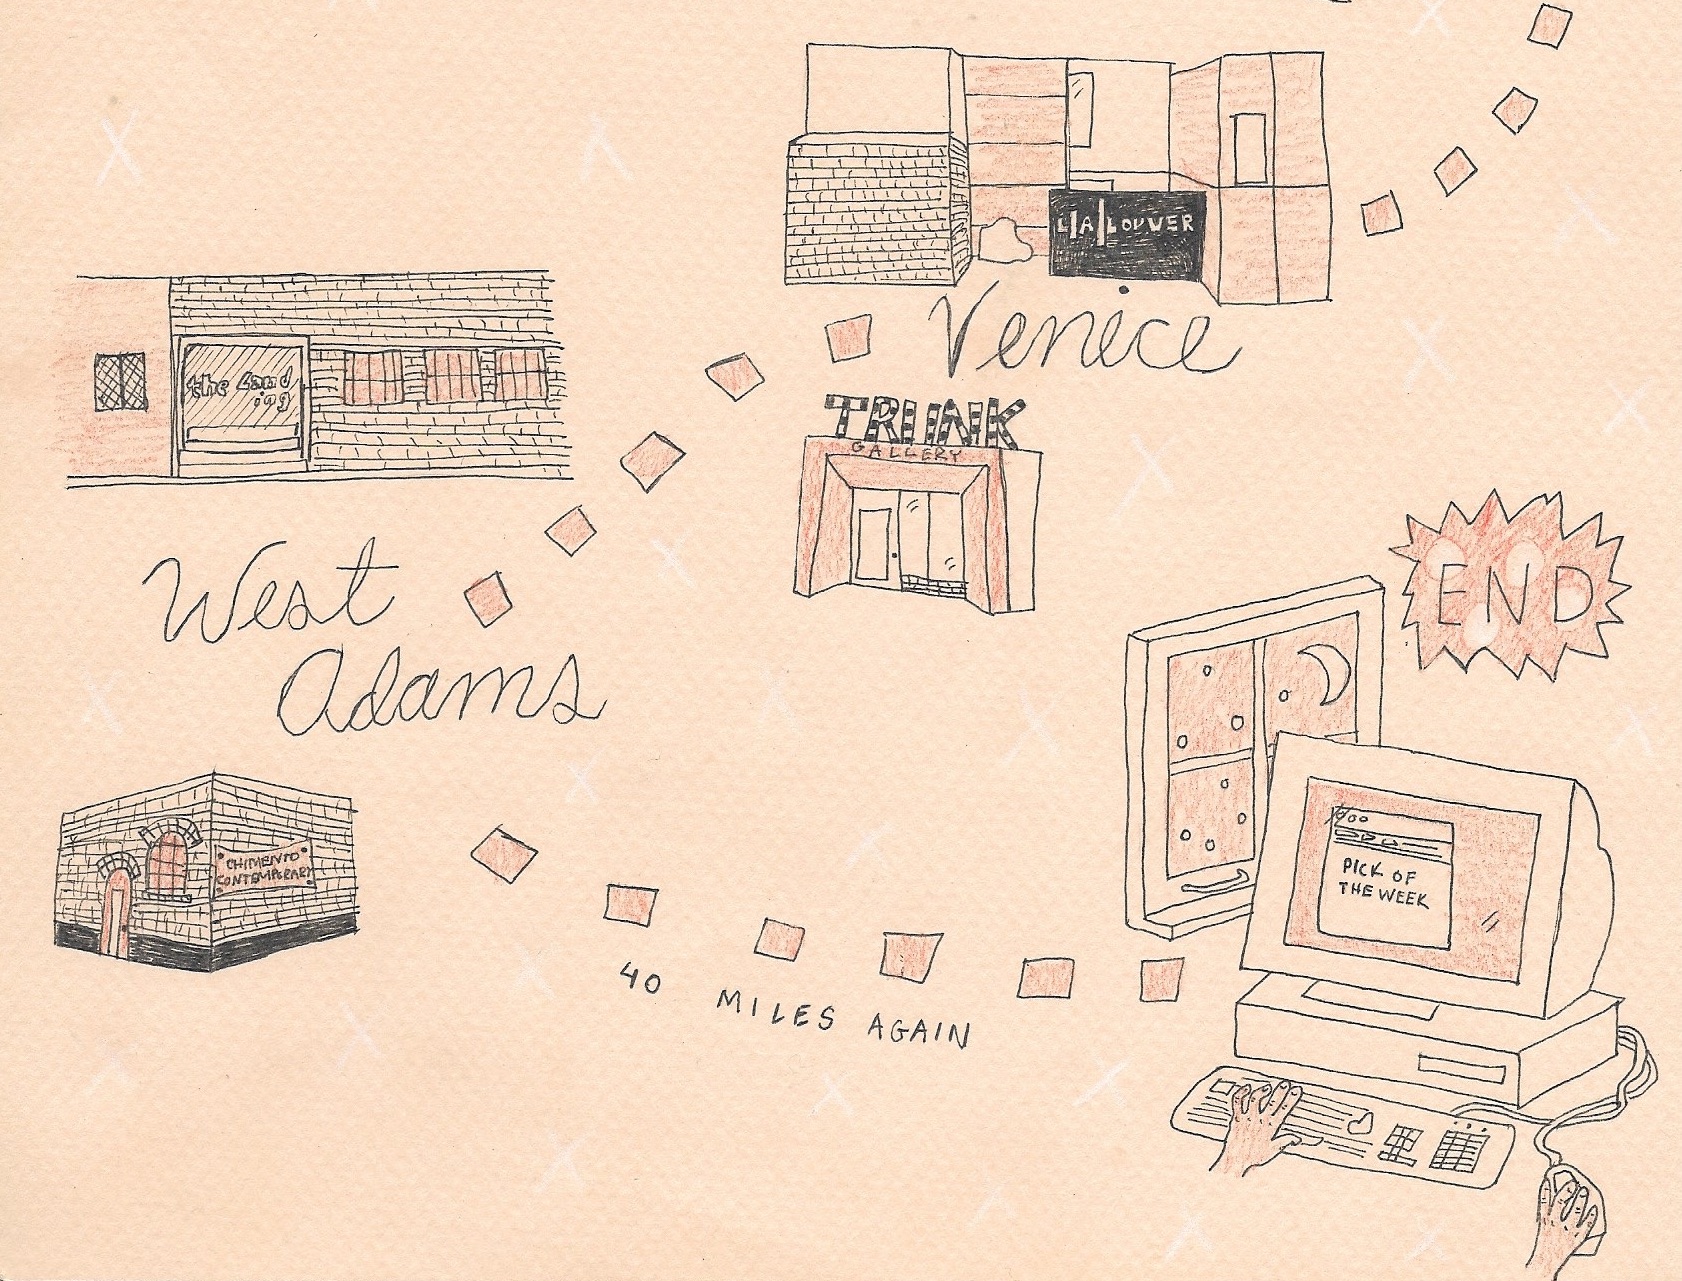 L|A|LOUVER
Venice
TRUNK
GALLERY
the Land
ing
West
Adams
END
CHIMENTO
CONTEMPORARY
PICK OF
THE WEEK
40 MILES AGAIN